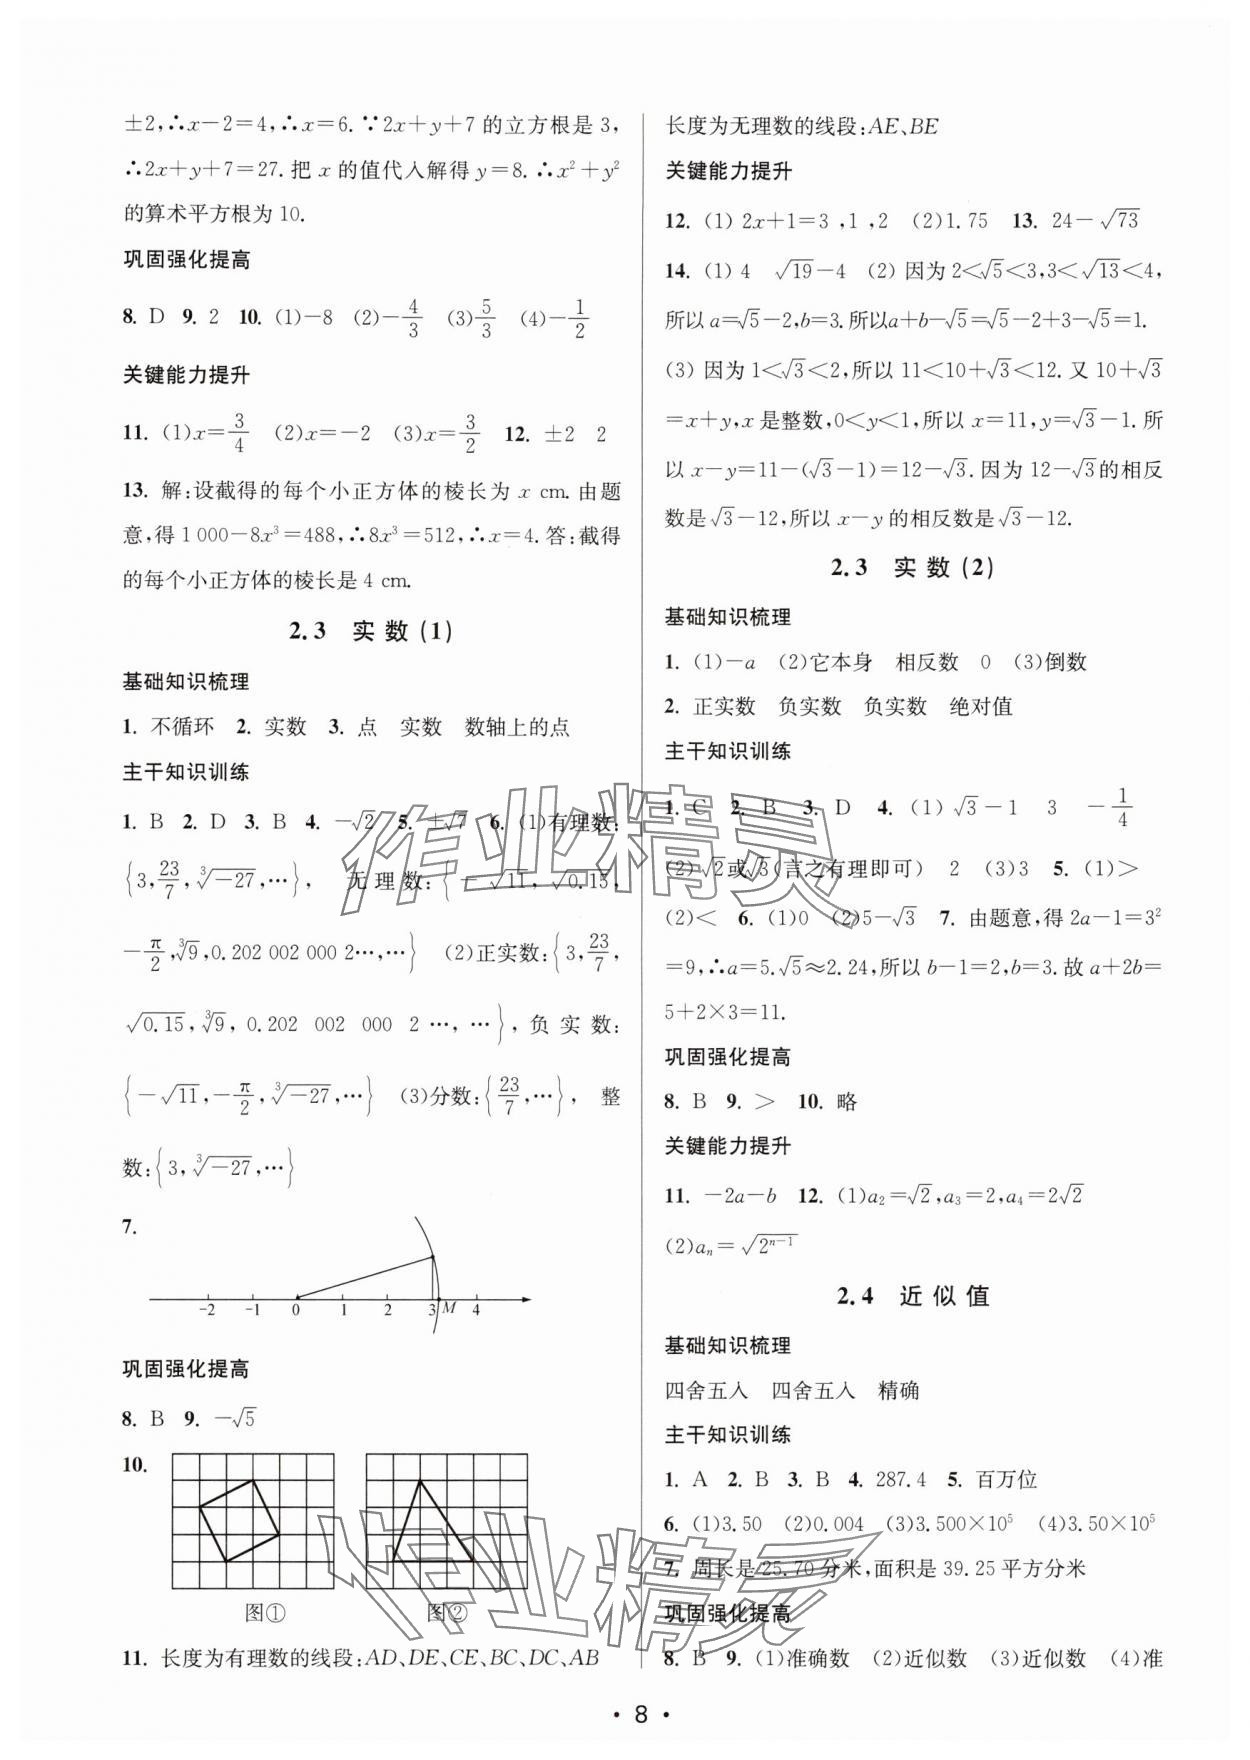 ±2,∴x−2=4,∴x=6.∵2x+y+7的立方根是3,
∴2x+y+7=27.把x的值代入解得y=8.∴x²+y²
的算术平方根为10.
巩固强化提高
8. D 9. 2 10. (1)−8 (2)−4/3 (3)5/3 (4)−1/2
关键能力提升
11. (1)x=3/4 (2)x=−2 (3)x=3/2 12. ±2 2
13. 解:设截得的每个小正方体的棱长为x cm.由题
意,得1 000−8x³=488,∴8x³=512,∴x=4.答:截得
的每个小正方体的棱长是4 cm.
2.3 实数(1)
基础知识梳理
1. 不循环 2. 实数 3. 点 实数 数轴上的点
主干知识训练
1. B 2. D 3. B 4. −√2 5. ±√7 6. (1)有理数:
{3,23/7,³√−27,…}, 无理数:{−√11,√0.15,
−π/2,³√9,0.202 002 000 2…,…} (2)正实数:{3,23/7,
√0.15,³√9,0.202 002 000 2…,…},负实数:
{−√11,−π/2,³√−27,…} (3)分数:{23/7,…}, 整
数:{3,³√−27,…}
7.
−2 −1 0 1 2 3 M 4
巩固强化提高
8. B 9. −√5
10.
图① 图②
11. 长度为有理数的线段:AD、DE、CE、BC、DC、AB
长度为无理数的线段:AE、BE
关键能力提升
12. (1) 2x+1=3 ,1 ,2 (2)1.75 13. 24−√73
14. (1) 4 √19−4 (2) 因为2<√5<3,3<√13<4,
所以a=√5−2,b=3.所以a+b−√5=√5−2+3−√5=1.
(3) 因为1<√3<2,所以11<10+√3<12.又10+√3
=x+y,x是整数,0<y<1,所以x=11,y=√3−1.所
以x−y=11−(√3−1)=12−√3.因为12−√3的相反
数是√3−12,所以x−y的相反数是√3−12.
2.3 实数(2)
基础知识梳理
1. (1)−a (2)它本身 相反数 0 (3)倒数
2. 正实数 负实数 负实数 绝对值
主干知识训练
1. C 2. B 3. D 4. (1) √3−1 3 −1/4
(2)√2或√3(言之有理即可) 2 (3)3 5. (1)>
(2)< 6. (1)0 (2)5−√3 7. 由题意,得2a−1=3²
=9,∴a=5.√5≈2.24,所以b−1=2,b=3.故a+2b=
5+2×3=11.
巩固强化提高
8. B 9. > 10. 略
关键能力提升
11. −2a−b 12. (1)a₂=√2,a₃=2,a₄=2√2
(2)aₙ=√2ⁿ⁻¹
2.4 近似值
基础知识梳理
四舍五入 四舍五入 精确
主干知识训练
1. A 2. B 3. B 4. 287.4 5. 百万位
6. (1)3.50 (2)0.004 (3)3.500×10⁵ (4)3.50×10⁵
7. 周长是25.70分米,面积是39.25平方分米
巩固强化提高
8. B 9. (1)准确数 (2)近似数 (3)近似数 (4)准
• 8 •
作业精灵
作业精灵